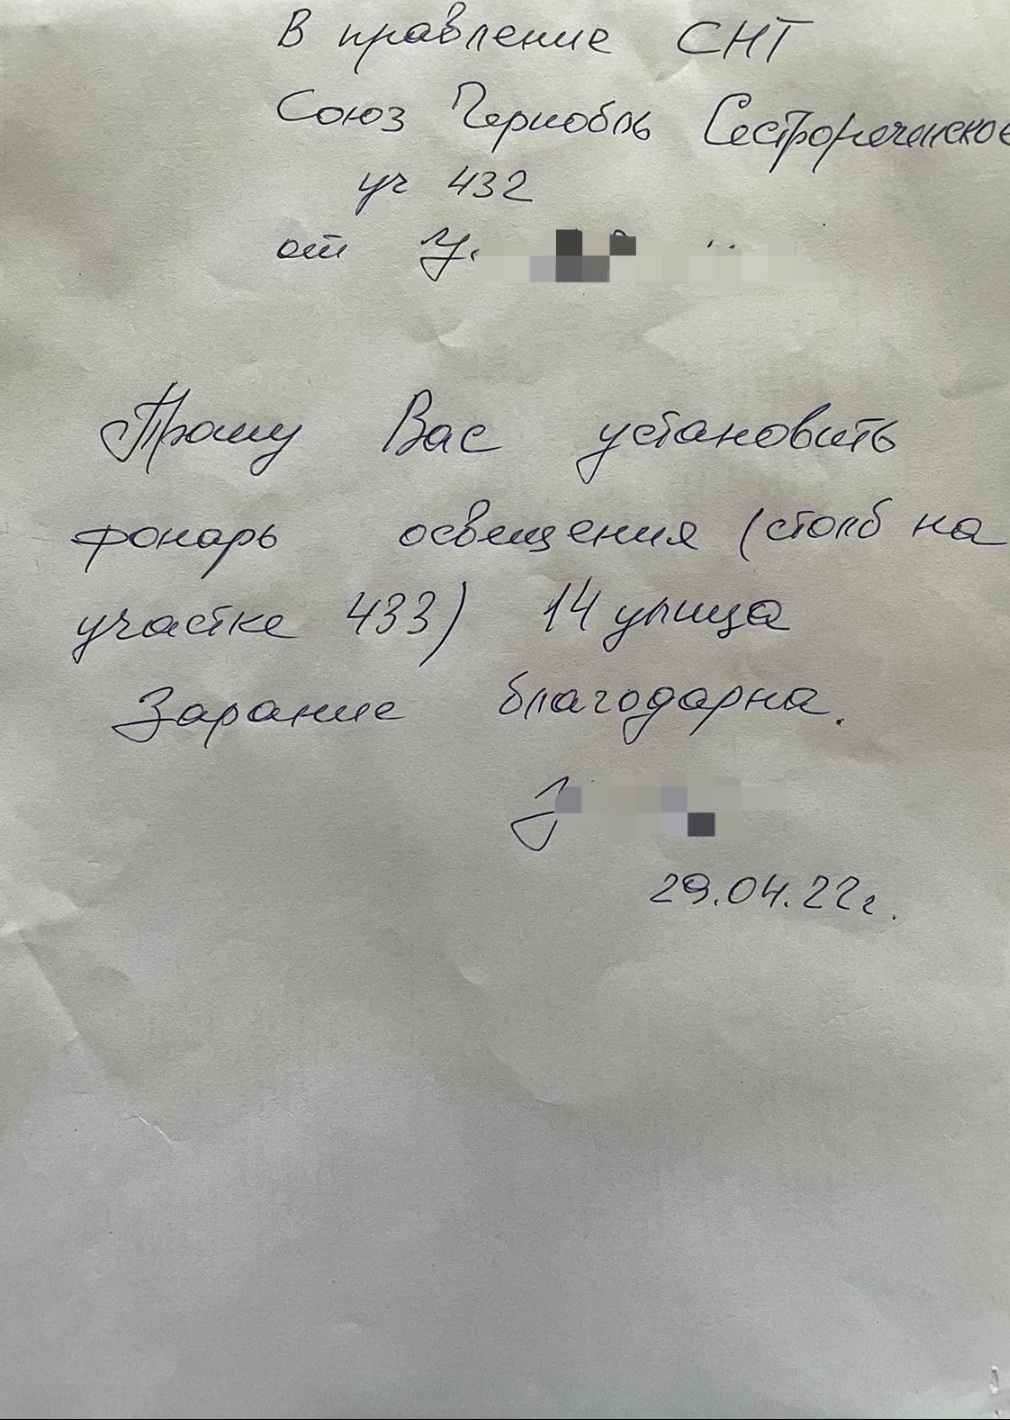 В правление СНТ
Союз Чернобль Сестрореченское
уч 432
от
Прошу Вас установить
фонарь освещения (столб на
участке 433) 14 улица
Зарание благодарна.
29.04.22г.